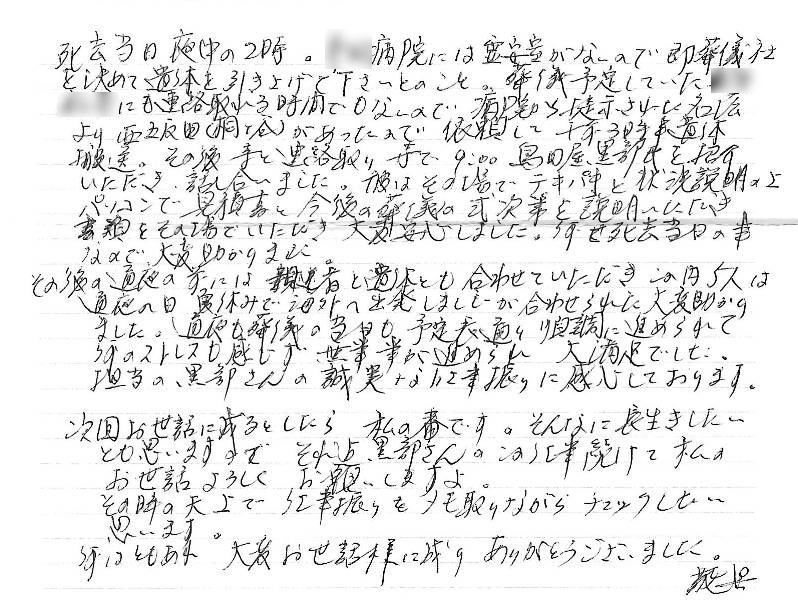 死去当日夜中の2時。病院には霊安室がないので即葬儀社
を決めて遺体を引き上げて下さいとのこと。葬儀予定していた
にも連絡取れる時間でもないので、病院から提示された名店
より西五反田(桐ヶ谷)があったので依頼して午前3時半遺体
搬送。その後早々連絡取り早で9:00 島田屋黒部氏を招す
いただき、話し合いました。彼はその場でテキパキと状況説明の上
パソコンで見積書と今後の葬儀の式次第を説明いただき
書類をその場でいただき大変安心しました。何せ死去当日の事
なので大変助かりました。
その後の通夜の前には親近者と遺体とも合わせていただきこの内5人は
通夜の日夏休みで海外へ出発しましたが合わせられた大変助かり
ました。通夜も葬儀の当日も予定表通り順調に進められて
何のストレスも感じず世事事が進められ大満足でした。
担当の黒部さんの誠実な仕事振りに感心しております。
次回お世話に成るとしたら私の番です。そんなに長生きしたい
とも思いますので それ迄黒部さんのこの仕事続けて私の
お世話よろしくお願いしますよ。
その時の天上で仕事振りをメモ取りながらチェックしたい
思います。
何はともあれ 大変お世話様に成り ありがとうございました。